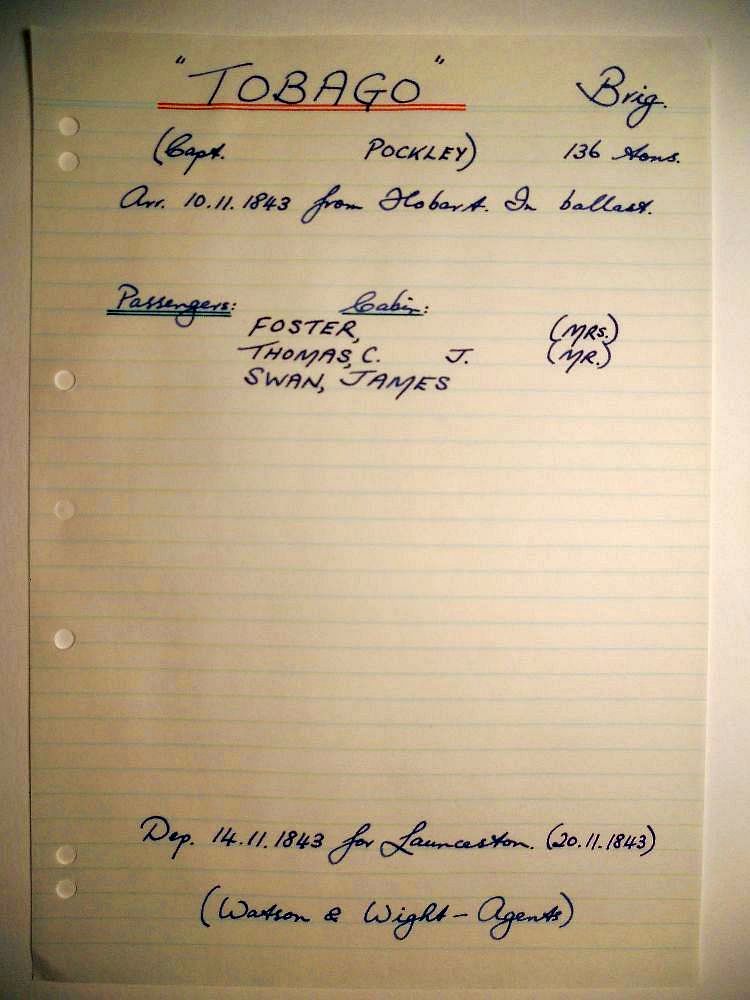 "TOBAGO" Brig.
(Capt. POCKLEY) 136 tons.
Arr. 10.11.1843 from Hobart. In ballast.
Passengers: Cabin:
FOSTER, (MRS.)
THOMAS, C. J. (MR.)
SWAN, JAMES
Dep. 14.11.1843 for Launceston. (20.11.1843)
(Watson & Wight - Agents)